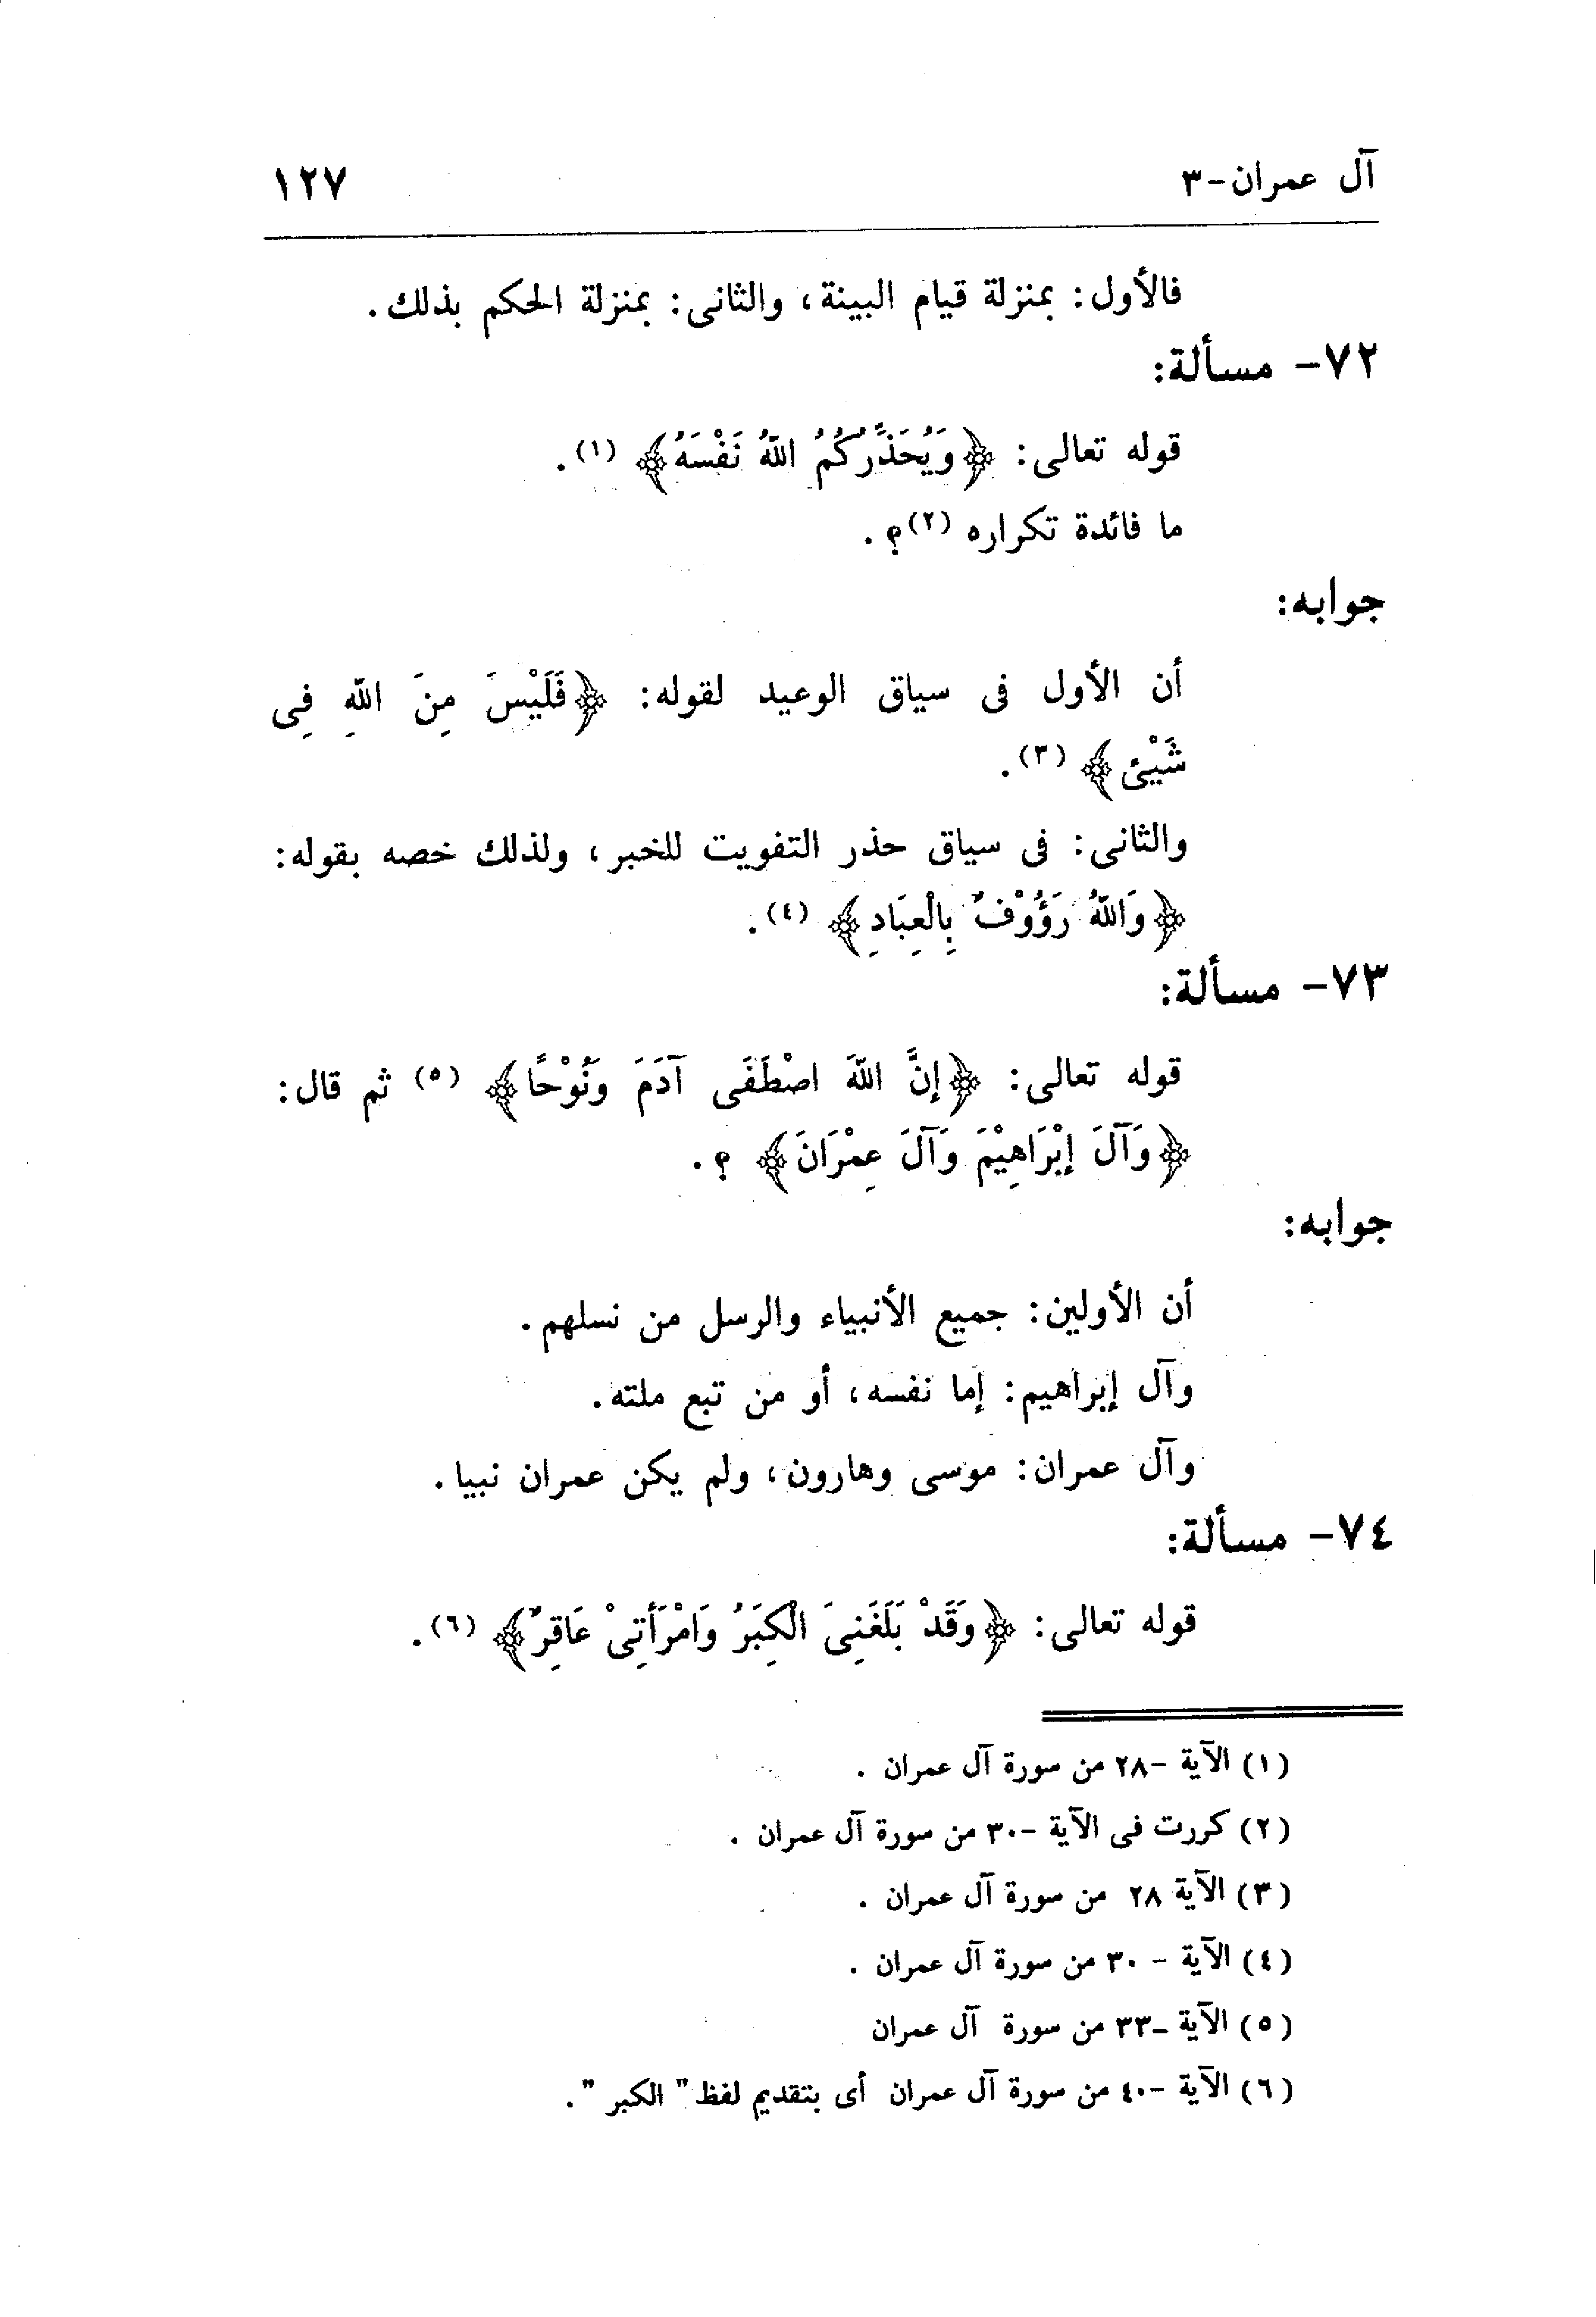 آل عمران-٣
١٢٧
فالأول: بمنزلة قيام البينة، والثانى: بمنزلة الحكم بذلك.
٧٢- مسألة:
قوله تعالى: ﴿وَيُحَذِّرُكُمُ اللهُ نَفْسَهُ﴾ (١).
ما فائدة تكراره (٢)؟.
جوابه:
أن الأول فى سياق الوعيد لقوله: ﴿فَلَيْسَ مِنَ اللهِ فِى
شَيْئ﴾ (٣).
والثانى: فى سياق حذر التفويت للخبر، ولذلك خصه بقوله:
﴿وَاللهُ رَؤُوْفٌ بِالْعِبَادِ﴾ (٤).
٧٣- مسألة:
قوله تعالى: ﴿إنَّ اللهَ اصْطَفَى آدَمَ وَنُوْحًا﴾ (٥) ثم قال:
﴿وَآلَ إبْرَاهِيْمَ وَآلَ عِمْرَانَ﴾ ؟.
جوابه:
أن الأولين: جميع الأنبياء والرسل من نسلهم.
وآل إبراهيم: إما نفسه، أو من تبع ملته.
وآل عمران: موسى وهارون، ولم يكن عمران نبيا.
٧٤- مسألة:
قوله تعالى: ﴿وَقَدْ بَلَغَنِىَ الْكِبَرُ وَامْرَأَتِىْ عَاقِرٌ﴾ (٦).
(١) الآية -٢٨ من سورة آل عمران .
(٢) كررت فى الآية -٣٠ من سورة آل عمران .
(٣) الآية ٢٨ من سورة آل عمران .
(٤) الآية - ٣٠ من سورة آل عمران .
(٥) الآية -٣٣ من سورة آل عمران
(٦) الآية -٤٠ من سورة آل عمران أى بتقديم لفظ " الكبر ".